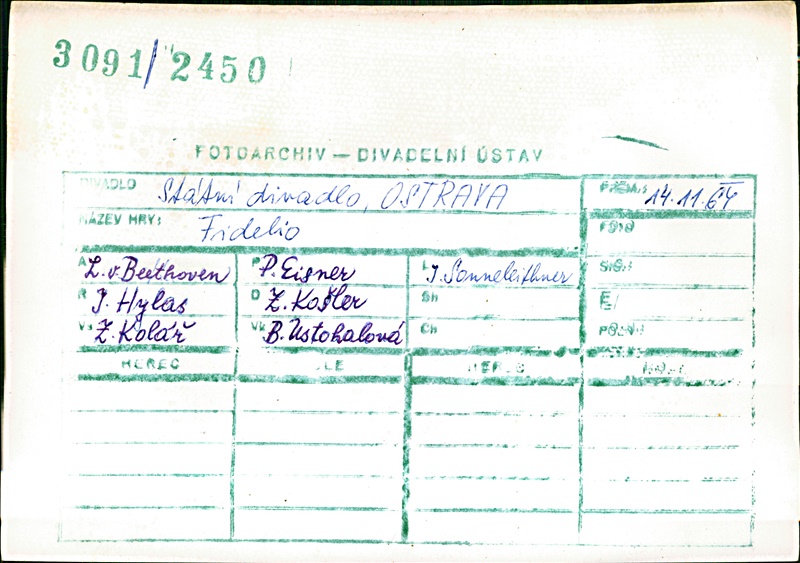 3091/2450
FOTOARCHIV — DIVADELNÍ ÚSTAV
DIVADLO Státní divadlo, OSTRAVA PREM.: 14.11.64
NÁZEV HRY: Fidelio FOTO
A L. v. Beethoven P P. Eisner L J. Sonneleithner SIGN
R I. Hylas D Z. Košler Sh
Vs Z. Kolář Vk B. Ustohalová Ch POZN
HEREC ROLE HEREC ROLE